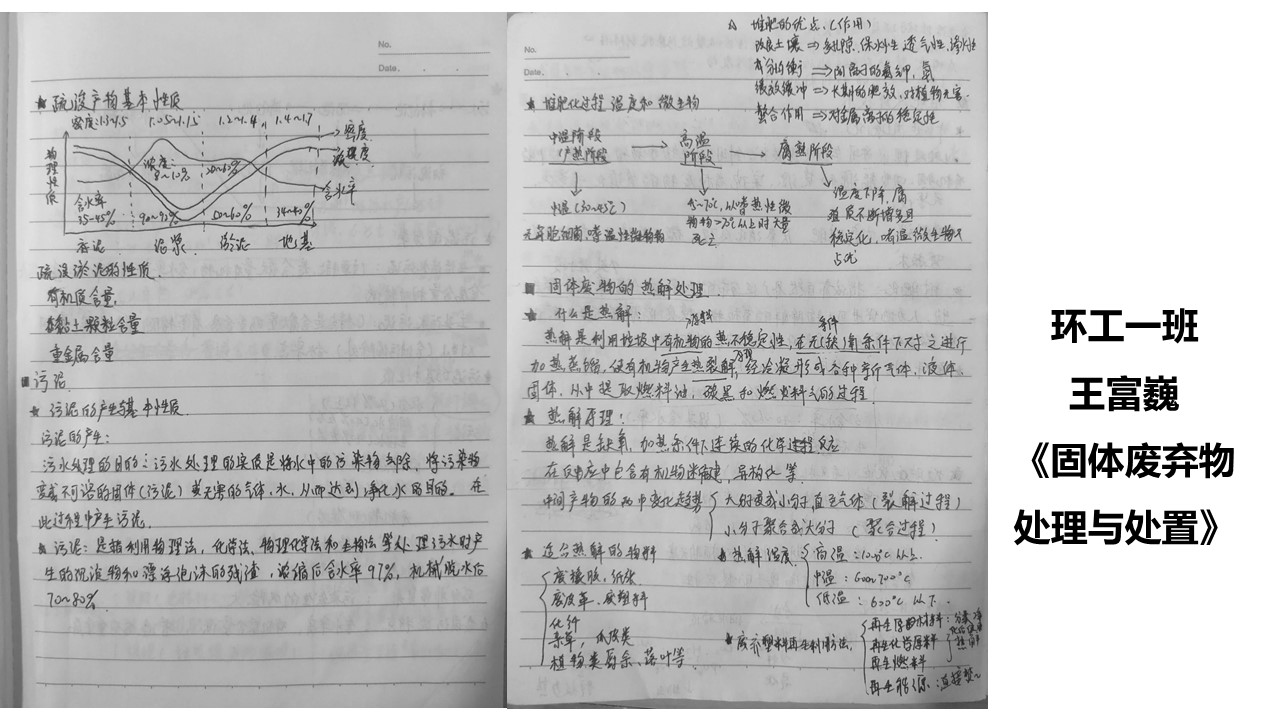 No.
Date.
★ 疏浚产物基本性质
密度:1.3~1.5 1.05~1.15 1.2~1.4 1.4~1.7
密度
物理性质
浓度:
8~10%
20~60%
含水率
含水率
35~45% 50~60% 34~40%
底泥 泥浆 淤泥 地基
疏浚淤泥的性质
有机质含量,
黏土颗粒含量
重金属含量
■ 污泥
★ 污泥的产生与基本性质
污泥的产生:
污水处理的目的:污水处理的实质是将水中的污染物去除,将污染物
变成不可溶的固体(污泥)或无害的气体,水,从而达到净化水的目的。在
此过程中产生污泥.
★ 污泥:是指利用物理法,化学法、物理化学法和生物法等处理污水时产
生的沉淀物和漂浮泡沫的残渣,浓缩后含水率97%,机械脱水后
70~80%
△ 堆肥的优点.(作用)
改良土壤 ⇒ 多孔隙.保水性 透气性,渗水性
养分均衡 ⇒
缓放缓冲 ⇒ 长期的肥效,对植物无害.
螯合作用 ⇒ 对金属离子的稳定化
No.
Date.
★ 堆肥化过程 温度和微生物
中温阶段
(产热阶段) → 高温阶段 → 腐熟阶段
中温(30~45℃)
嗜热性微
死亡
温度下降,腐
殖质不断增多且
稳定化,嗜温微生物又
占优
■ 固体废物的热解处理.
★ 什么是热解:
原料 条件
热解是利用垃圾中有机物的热不稳定性,在无(缺)氧条件下对之进行
加热蒸馏,使有机物产生热裂解,经冷凝形成各种新气体,液体,
固体,从中提取燃料油,碳黑和燃料气的过程.
★ 热解原理:
热解是缺氧,加热条件下连续的化学过程反应
在反应中包含有机物断键,异构化等.
中间产物的两中变化趋势 大分子变成小分子直至气体(裂解过程)
小分子聚合成大分子 (聚合过程)
★ 适合热解的物料
废橡胶,纸张
废皮革.废塑料
化纤
植物类厨余、落叶等.
★ 热解温度. 高温:1000℃以上.
中温:600~700℃
低温:600℃以下.
★ 废弃塑料再生利用方法,
再生化学原料
再生燃料
再生能源:
环工一班
王富巍
《固体废弃物
处理与处置》